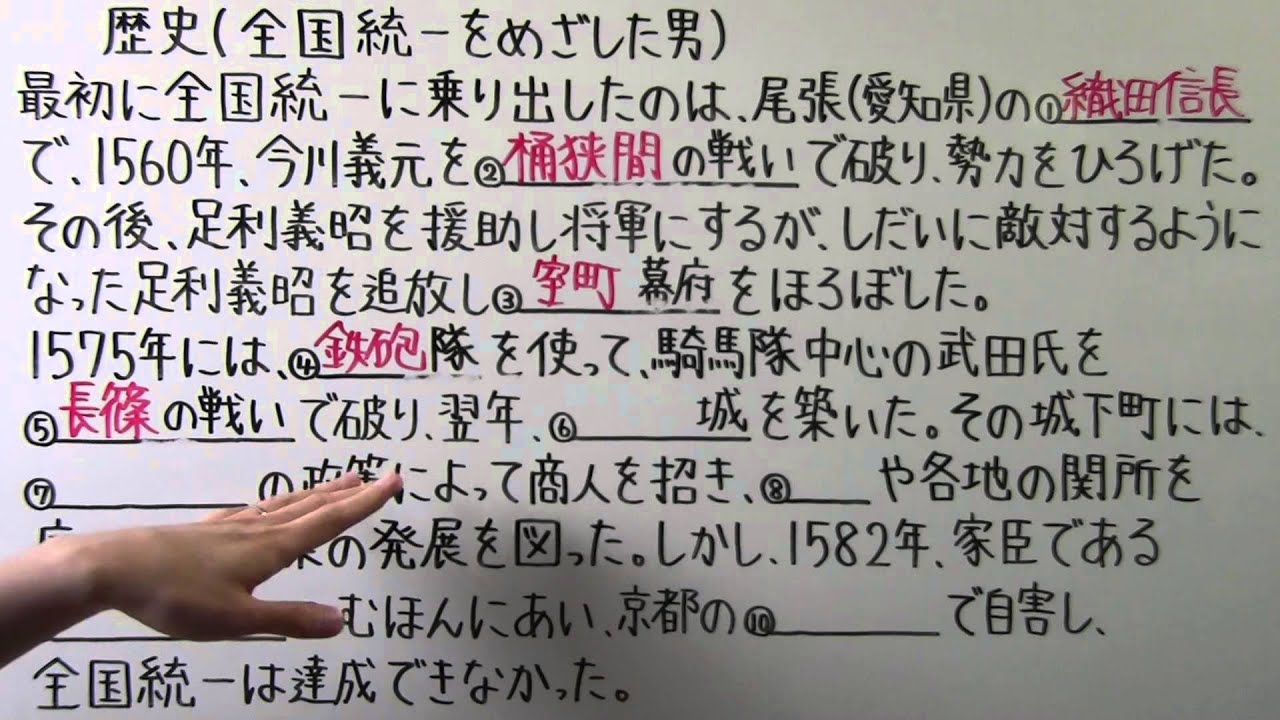 歴史(全国統一をめざした男)
最初に全国統一に乗り出したのは、尾張(愛知県)の①織田信長
で、1560年、今川義元を②桶狭間の戦いで破り、勢力をひろげた。
その後、足利義昭を援助し将軍にするが、しだいに敵対するように
なった足利義昭を追放し③室町幕府をほろぼした。
1575年には、④鉄砲隊を使って、騎馬隊中心の武田氏を
⑤長篠の戦いで破り、翌年、⑥城を築いた。その城下町には、
⑦の政策によって商人を招き、⑧や各地の関所を
の発展を図った。しかし、1582年、家臣である
むほんにあい、京都の⑩で自害し、
全国統一は達成できなかった。